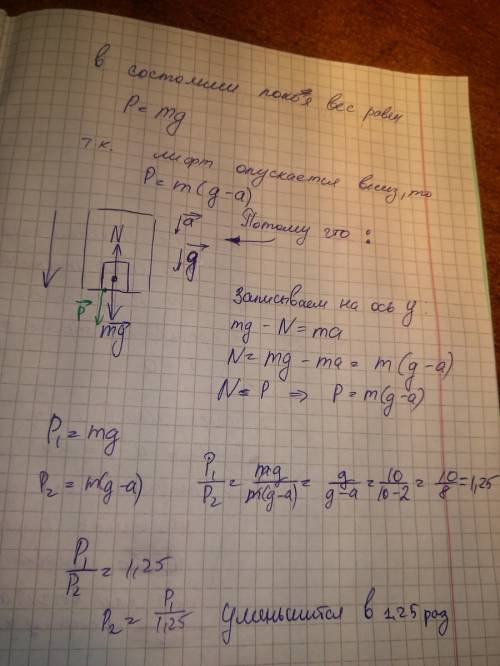 В состоянии покоя вес равен
P = mg
т.к. лифт опускается вниз, то
P = m(g-a)
a⃗
N
Потому что:
g⃗
P⃗
mg
Записываем на ось y:
mg - N = ma
N = mg - ma = m(g-a)
N = P ⇒ P = m(g-a)
P₁ = mg
P₂ = m(g-a)
P₁/P₂ = mg/m(g-a) = g/g-a = 10/10-2 = 10/8 = 1,25
P₁/P₂ = 1,25
P₂ = P₁/1,25 уменьшится в 1,25 раз